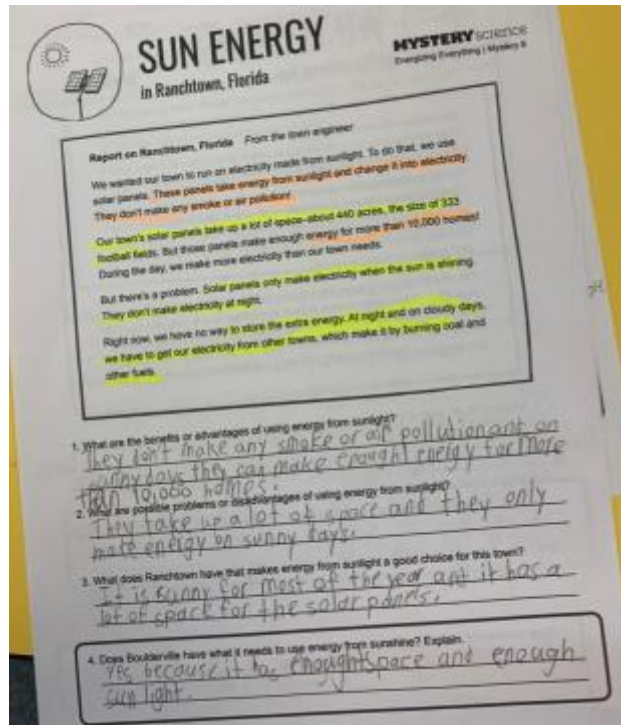 SUN ENERGY
in Ranchtown, Florida
MYSTERY science
Energizing Everything | Mystery 8
Report on Ranchtown, Florida From the town engineer
We wanted our town to run on electricity made from sunlight. To do that, we use
solar panels. These panels take energy from sunlight and change it into electricity.
They don't make any smoke or air pollution!
Our town's solar panels take up a lot of space-about 440 acres, the size of 333
football fields. But those panels make enough energy for more than 10,000 homes!
During the day, we make more electricity than our town needs.
But there's a problem. Solar panels only make electricity when the sun is shining.
They don't make electricity at night.
Right now, we have no way to store the extra energy. At night and on cloudy days,
we have to get our electricity from other towns, which make it by burning coal and
other fuels.
1. What are the benefits or advantages of using energy from sunlight?
They don't make any smoke or air pollution ant on
sunny days they can make enought energy for more
than 10,000 homes.
2. What are possible problems or disadvantages of using energy from sunlight?
They take up a lot of space and they only
make energy on sunny days.
3. What does Ranchtown have that makes energy from sunlight a good choice for this town?
It is sunny for most of the year ant it has a
lot of space for the solar panels.
4. Does Boulderville have what it needs to use energy from sunshine? Explain.
Yes because it has enought space and enough
sun light.